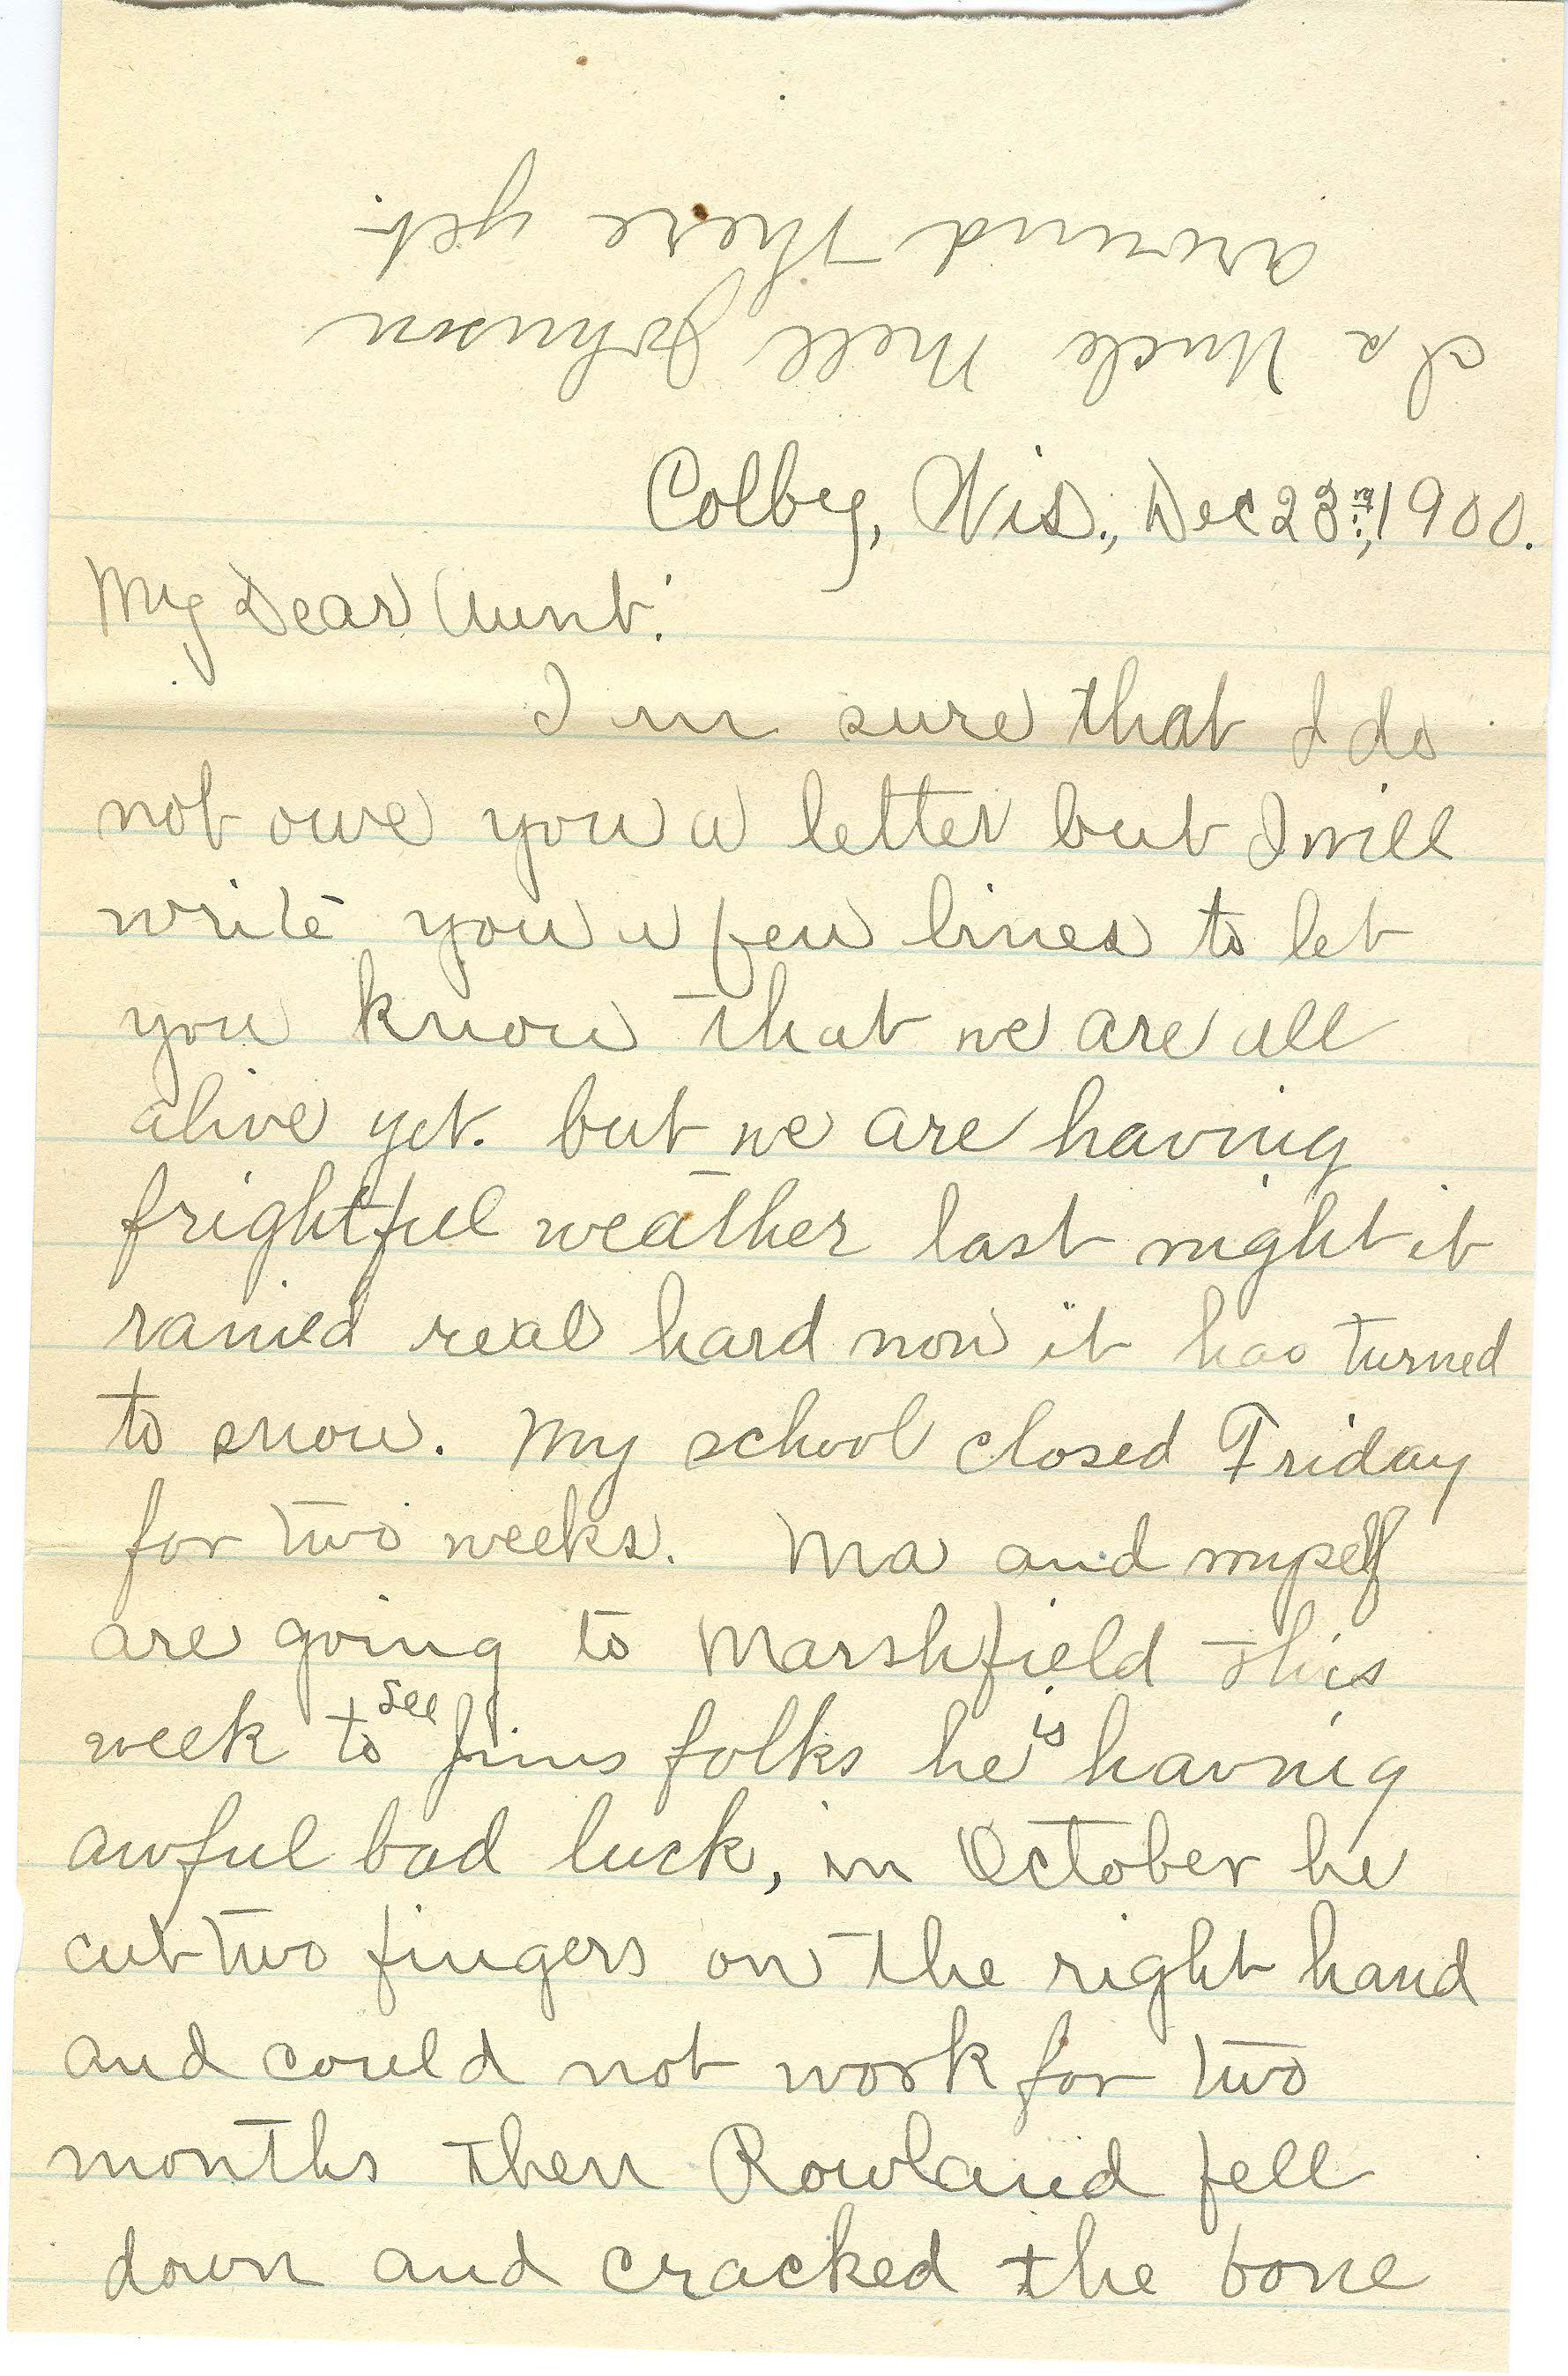 Is Uncle Mell Johnson
around there yet.
Colby, Wis., Dec 23rd, 1900.
My Dear Aunt:
I m sure that I do
not owe you a letter but I will
write you a few lines to let
you know that we are all
alive yet. but we are having
frightful weather last night it
rained real hard now it has turned
to snow. My school closed Friday
for two weeks. Ma and myself
are going to Marshfield this
week to see Jims folks he is having
awful bad luck, in October he
cut two fingers on the right hand
and could not work for two
months then Rowland fell
down and cracked the bone